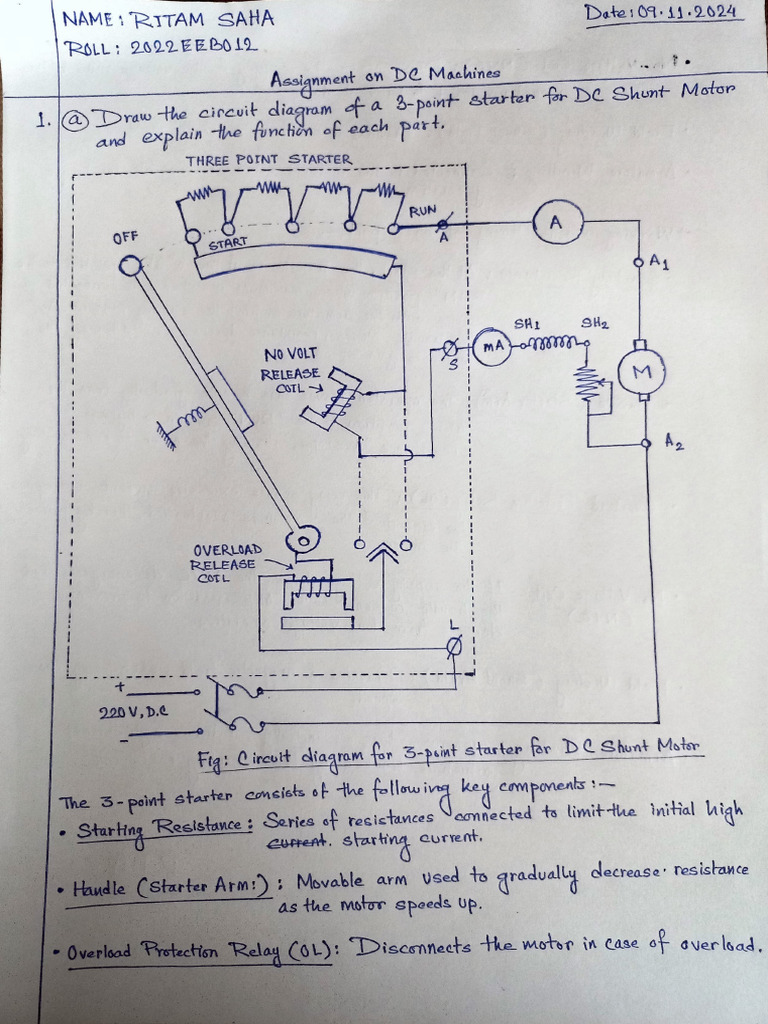 NAME: RITAM SAHA
Date: 09.11.2024
ROLL: 2022EEB012
Assignment on DC Machines
1. (a) Draw the circuit diagram of a 3-point starter for DC Shunt Motor
and explain the function of each part.
THREE POINT STARTER
OFF
START
RUN
A
A
A1
NO VOLT
RELEASE
COIL
S
mA
SH1
SH2
M
A2
OVERLOAD
RELEASE
COIL
L
+
220V, D.C
-
Fig: Circuit diagram for 3-point starter for DC Shunt Motor
The 3-point starter consists of the following key components:-
• Starting Resistance: Series of resistances connected to limit the initial high
current. starting current.
• Handle (Starter Arm:) : Movable arm used to gradually decrease resistance
as the motor speeds up.
• Overload Protection Relay (OL): Disconnects the motor in case of overload.